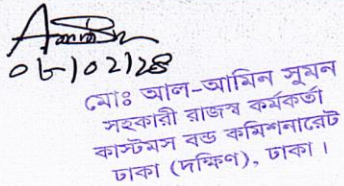 ০৮/০২/২৪
মোঃ আল-আমিন সুমন
সহকারী রাজস্ব কর্মকর্তা
কাস্টমস বন্ড কমিশনারেট
ঢাকা (দক্ষিণ), ঢাকা।